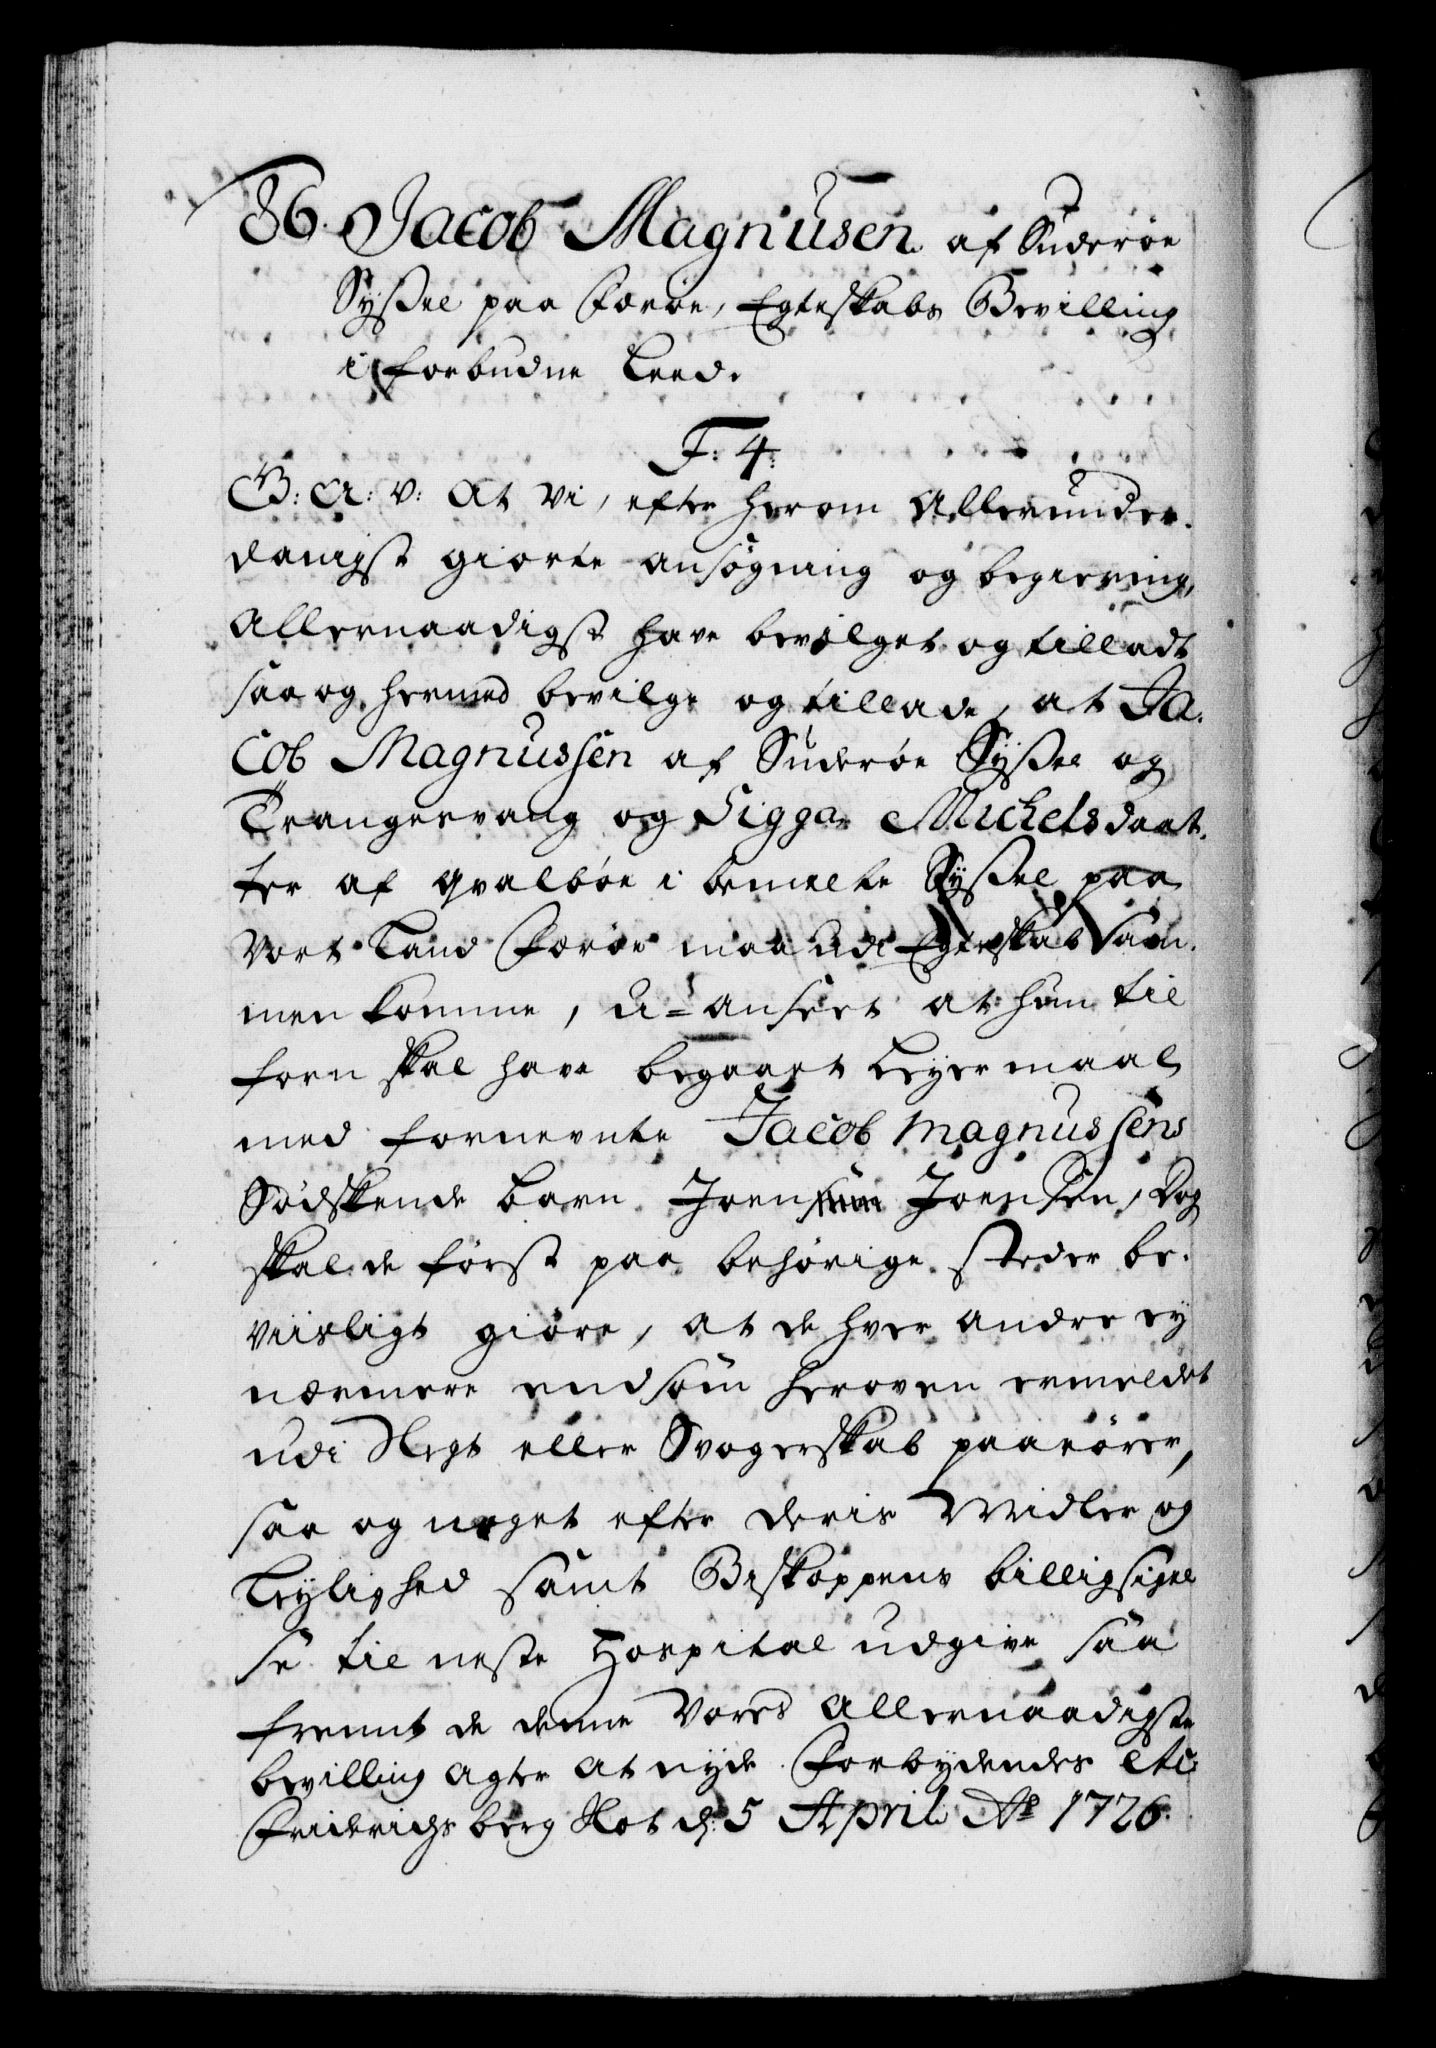 86. Jacob Magnusen af Suderøe
Sysßel paa Færøe, Egteskabs Bevilling
i forbudne Leed.
F: 4:
G: A: V: At Vi, efter herom Allerunder-
danigst giorte ansøgning og begiering,
Allernaadigst have bevilget og tilladt
saa og hermed bevilge og tillade, at Ja-
cob Magnussen af Suderøe Sysßel og
Trangesvang og Sigga Michelsdaat-
ter af Qvalbøe i bemelte Sysßel paa
Vort Land Færøe maa udi Egteskab sam-
men komme, u-anseet at hun til
forn skal have begaaet Leyermaal
med fornevnte Jacob Magnussens
Sødskende barn Joen Joensen, Dog
skal de først paa behørige steder be-
viisligt giøre, at de hver andre ey
nærmere end som heroven ermeldet
udi Slegt eller Svogerskab paarører,
saa og noget efter deris Midler og
Leylighed samt Biskoppens billigsigel
se til neste Hospital udgive saa
fremt de denne Vores Allernaadigste
bevilling agter at nyde. Forbydendes etc:
Friderichsberg Slot d: 5 April Ao 1726.